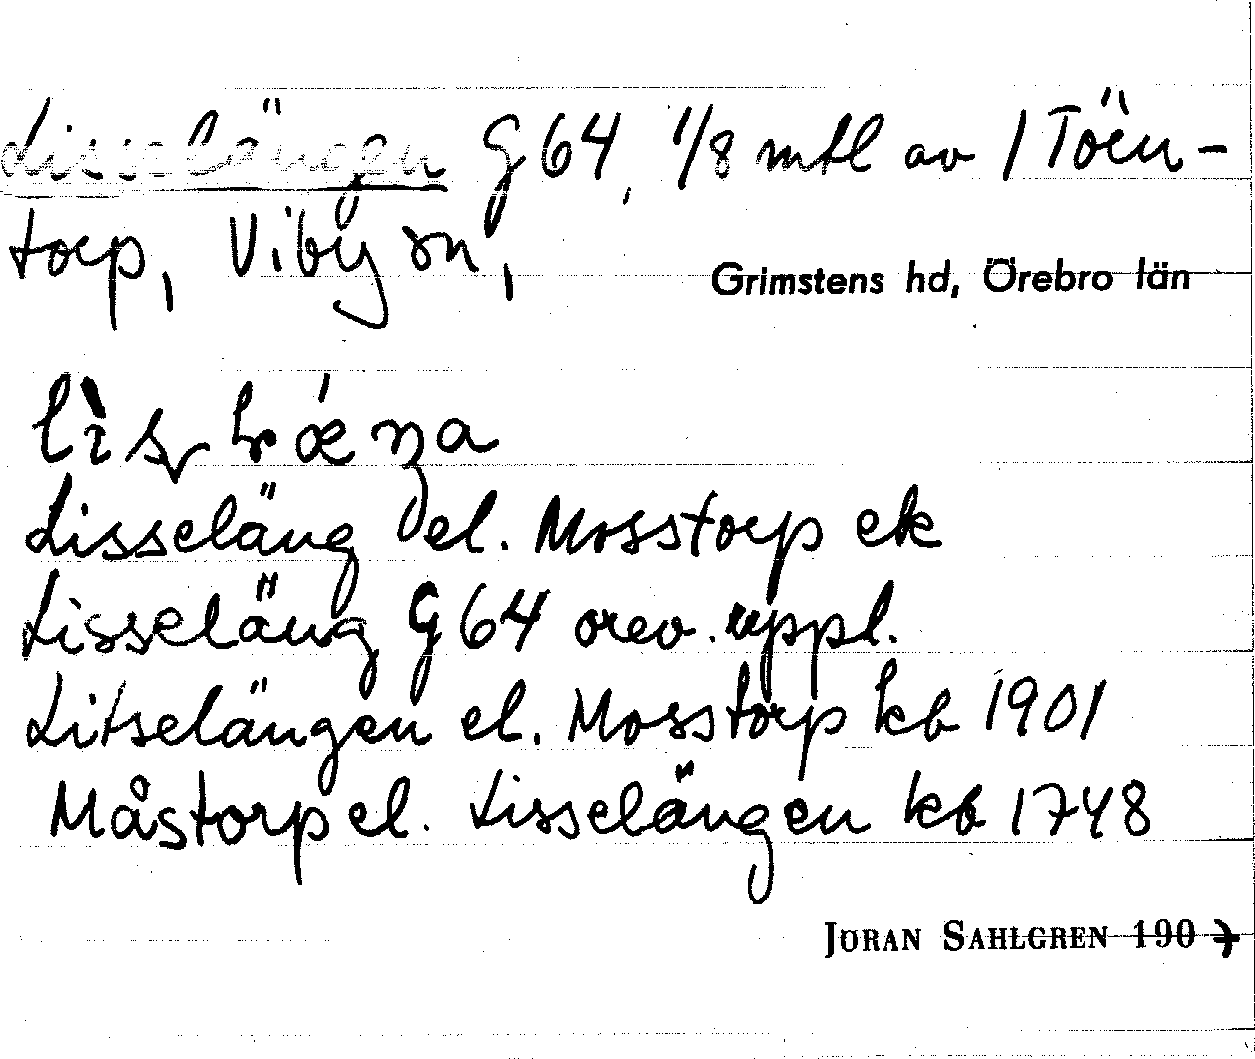 Lisselängen G 64, 1/8 mtl av 1 Töen-
torp, Viby sn,
Grimstens hd, Örebro län
Lisseläng el. Mosstorp ek
Lisseläng G 64 orev. uppl.
Litselängen el. Mosstorp kb 1901
Måstorp el. Lisselängen kb 1748
JÖRAN SAHLGREN 1907